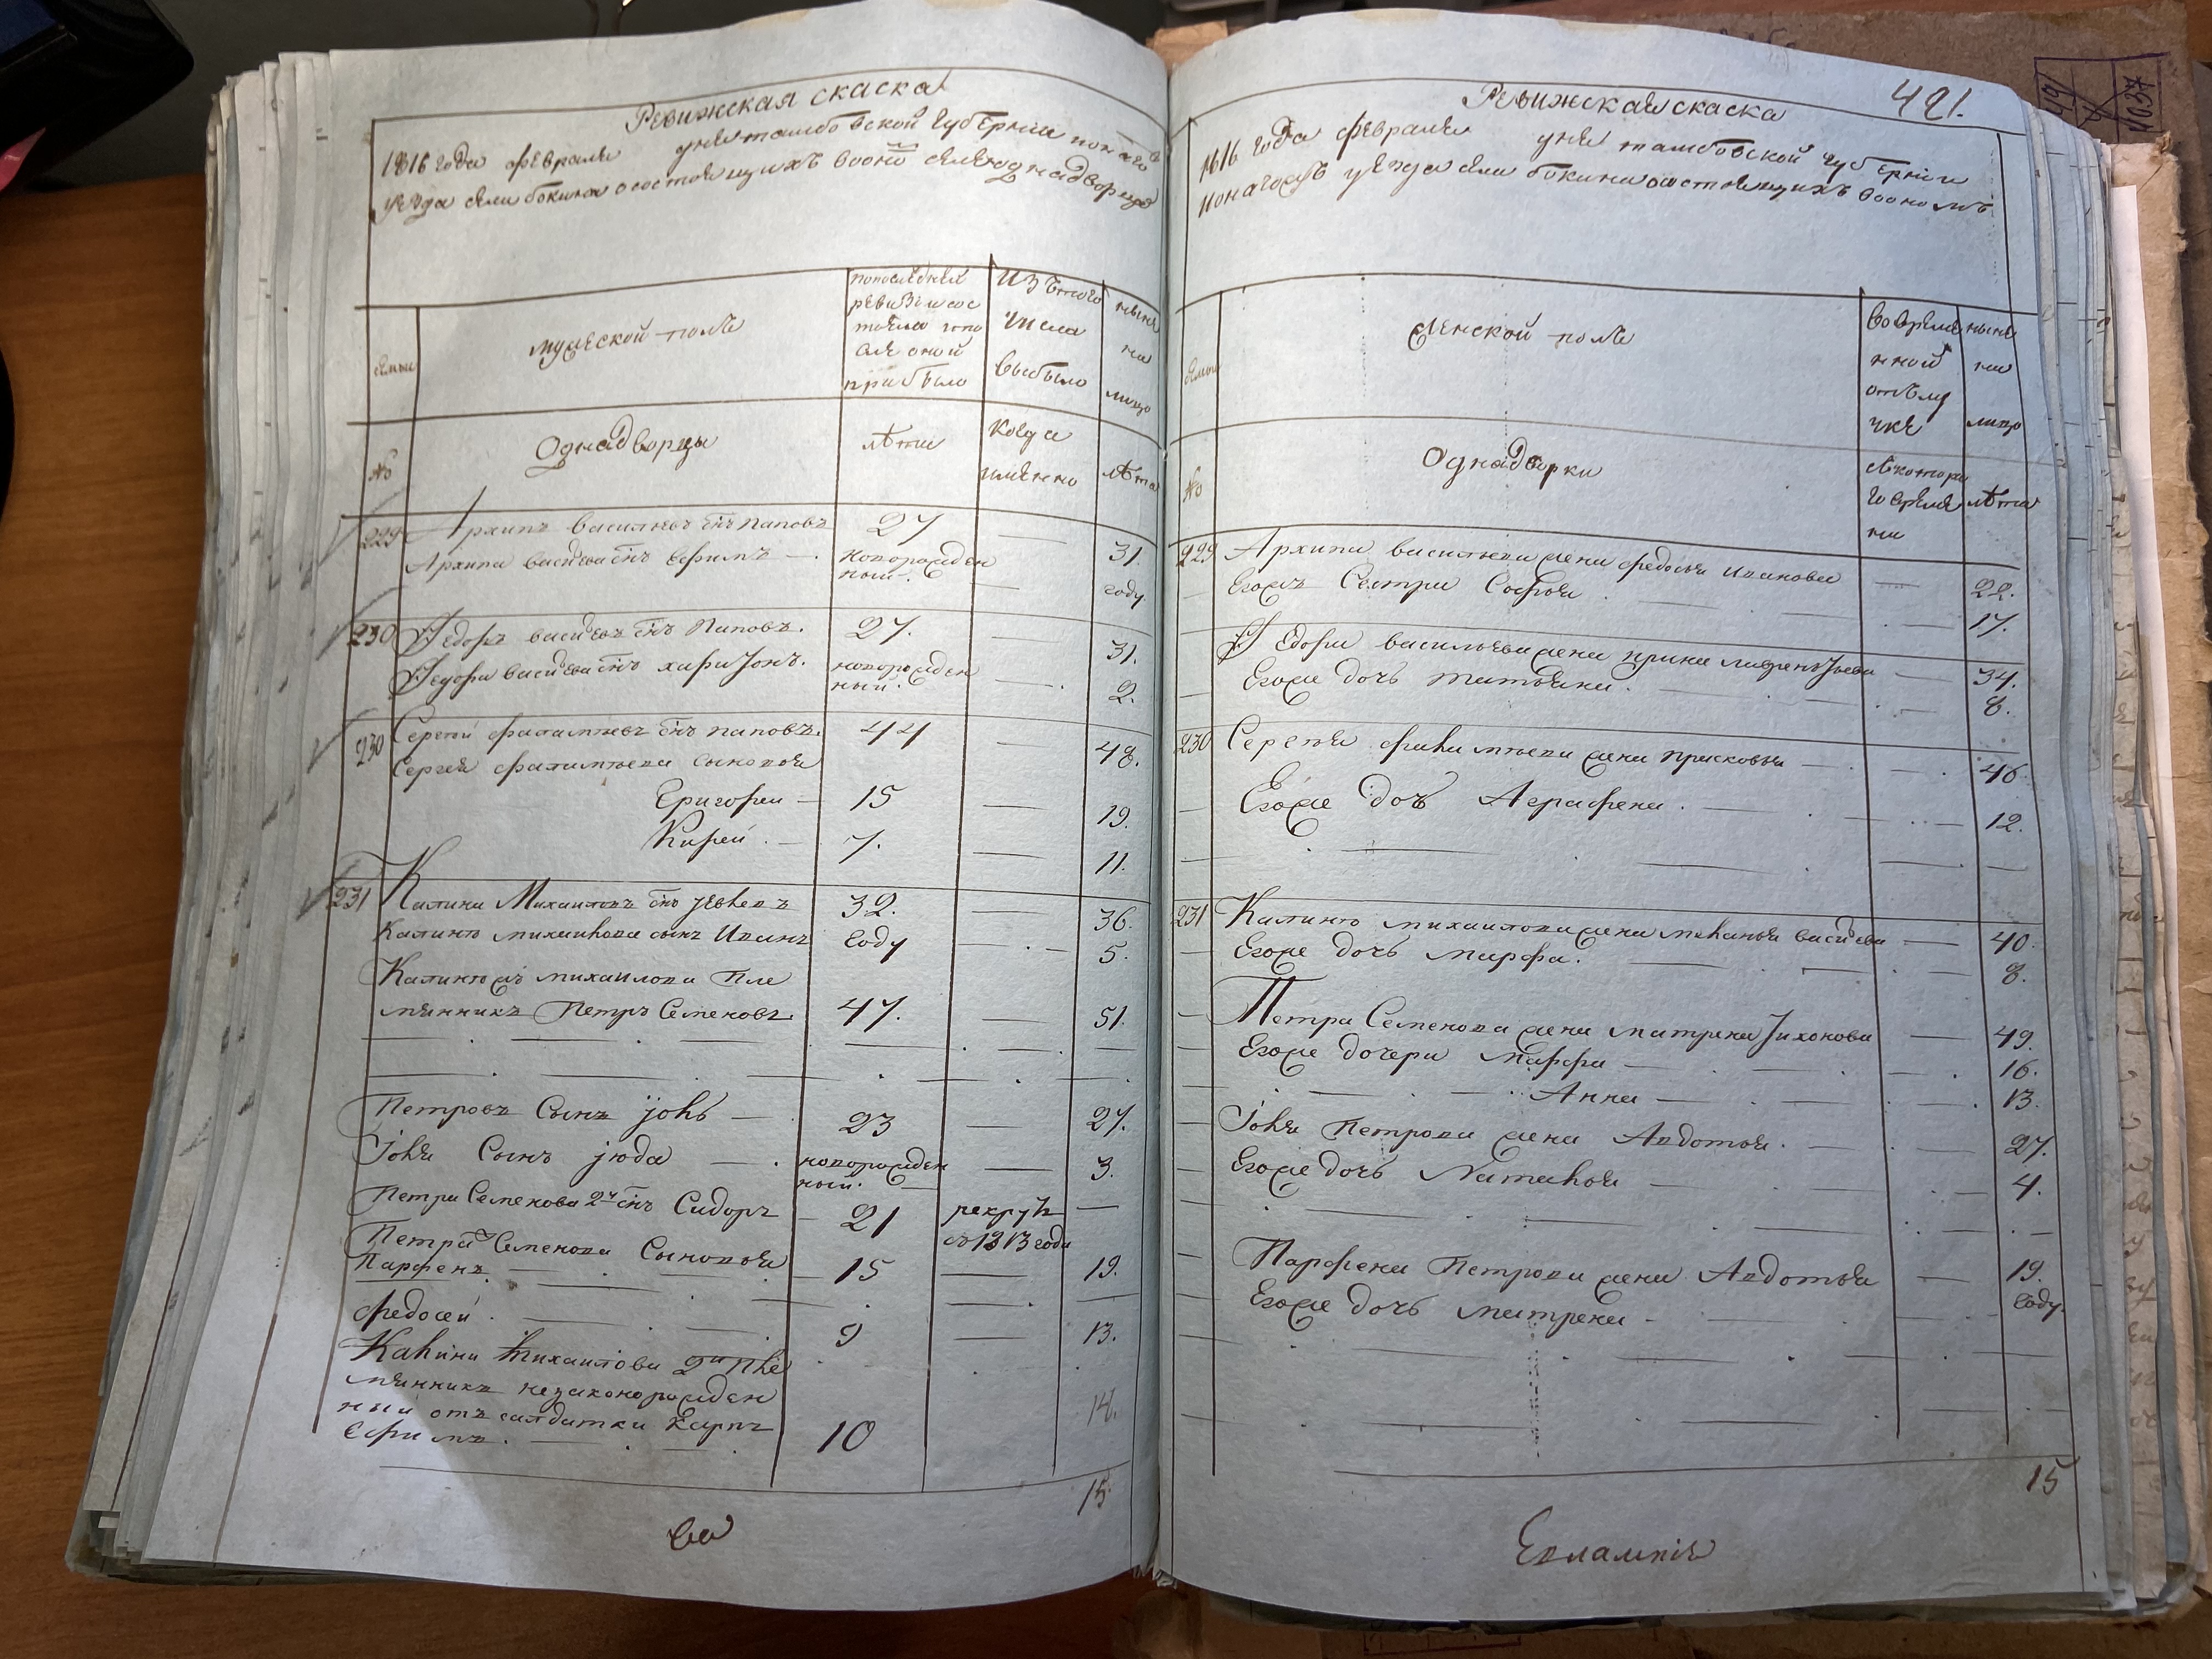 Ревижская скаска
1816 года февраля дня тамбовской губернии
уезда села бокина о состоящихъ воономъ селе однадворцо
семьи
мужеской полъ
попоследней
ревизии сос
тояло и по
сле оной
прибыло
изътого
числа
выбыло
ныне
на
лицо
№
Однадворцы
лѣта
когда
имянно
лѣта
229 Архипъ Васильевъ снъ Паповъ 27 — 31.
Архипа васильева снъ Ефимъ — новорожден
ный. — году.
230 Федоръ васильевъ снъ Паповъ. 27. — 31.
Федора васильева снъ харитонъ. новорожден
ный. — 2.
230 Сергей снъ паповъ. 44 — 48.
Сергея сыновья
Григорей — 15 — 19.
Кирей. — 7. — 11.
231 Калина Михаиловъ снъ 32. — 36.
Калины михаилова сынъ Иванъ году — 5.
Калины жъ михаилова пле
мянникъ Петръ Семеновъ. 47. — 51.
Петровъ Сынъ — 23 — 27.
Сынъ июда — новорожден
ный. — 3.
Петра Семенова 2й снъ Сидоръ — 21 рекрутъ —
въ 1813 году
Петра Семенова Сыновья
Парфенъ. — 15 — 19.
федосей. 9 — 13.
Калины Михаилова 2й пле
мянникъ незаконорожден
ный отъ салдатки
Ефимъ. 10 14.
15.
Ев
Ревижская скаска
421.
1816 года февраля дня тамбовской губернии
уезда села бокина о состоящихъ воономъ
семьи
женской полъ
во време
нной
отълу
чке
ныне
на
лицо
№
Однадворки
съкотора
го време
ни
лѣта
229 Архипа васильева жена федосья иванова — 22.
Егожъ Сестра Софья 17.
Федора васильева жена ирина лаврентьева — 34.
Егоже дочь татьяна. 8.
230 Сергея жена прасковья — 46.
Егоже дочь Аграфена. 12.
231 Калины михаилова жена маланья васильева — 40.
Егоже дочь марфа. 8.
Петра Семенова жена матрена Тихонова 49.
Егоже дочери Марфа — 16.
Анна — 13.
Петрова жена Авдотья. 27.
Егоже дочь Наталья — 4.
Парфена Петрова жена Авдотья — 19.
Егоже дочь матрена — году.
15
Евлампия